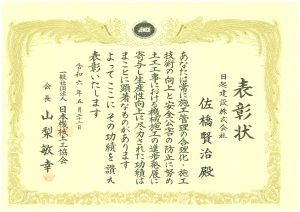 JEMCO
表彰状
日起建設株式会社
佐橋賢治殿
あなたは常に施工管理の合理化・施工
技術の向上と安全公害の防止に努め
土工工事における機械施工の進歩発展に
寄与し生産性向上に尽力された功績は
まことに顕著なものがあります
よってここにその功績を讃え
表彰いたします
令和六年五月二十二日
一般社団法人日本機械土工協会
会長山梨敏幸